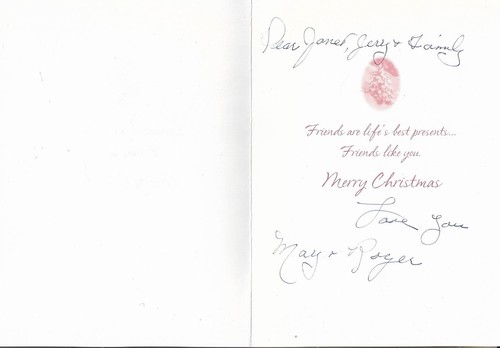 Dear Janet, Jerry & Family
Friends are life's best presents...
Friends like you.
Merry Christmas
Love you
May & Roger